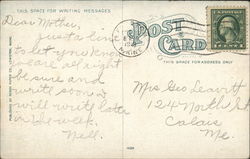 THIS SPACE FOR WRITING MESSAGES
POST CARD
THIS SPACE FOR ADDRESS ONLY
Dear Mother,
Just a line
to let you know
we are all right
be sure and
write soon I
will write later
in the week.
Nell.
Mrs Geo Leavitt
124 North St
Calais
Me.